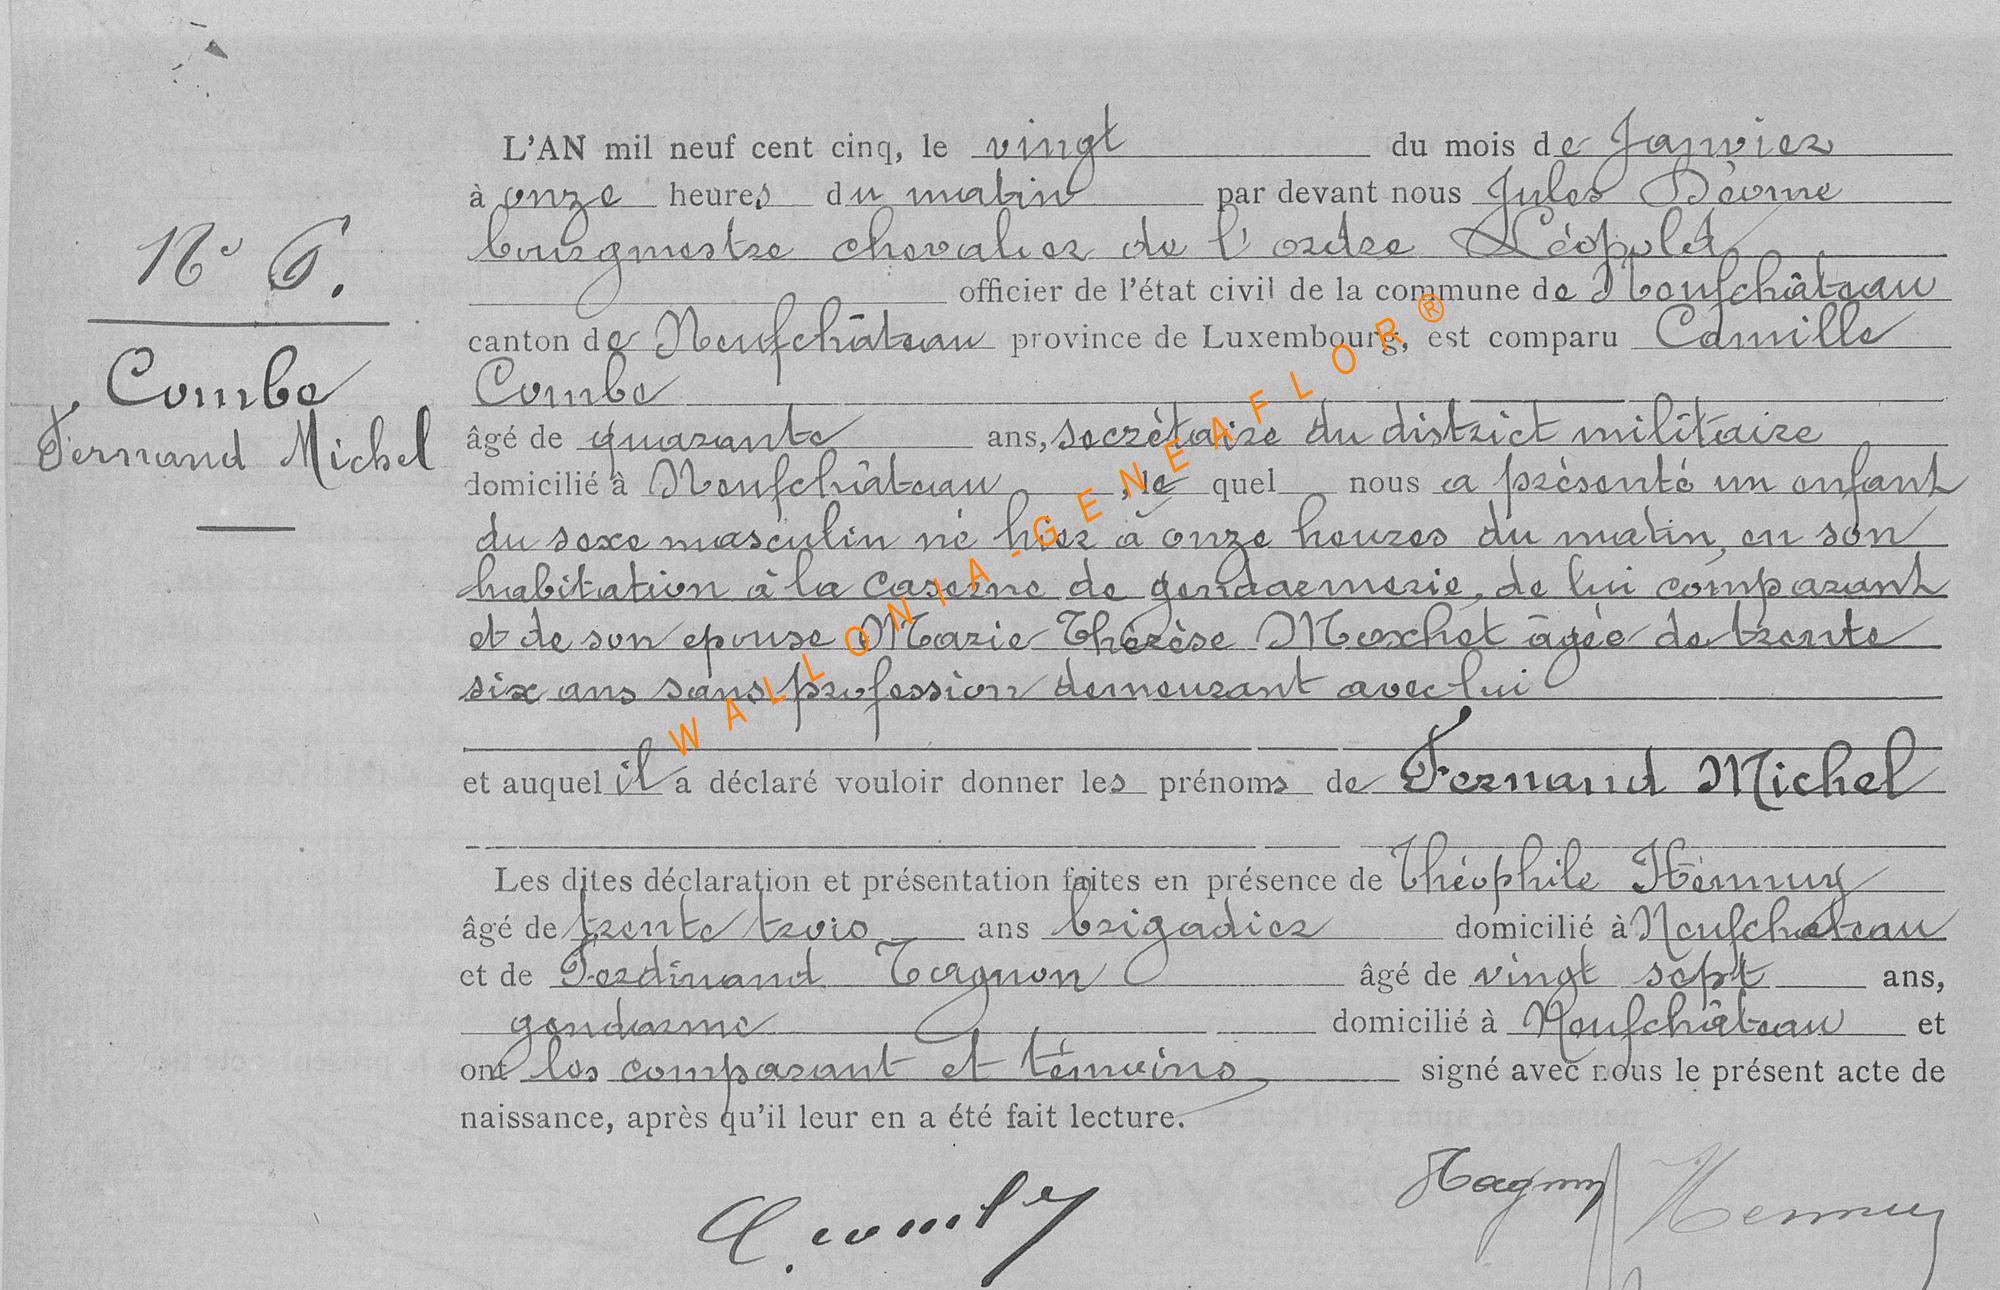 L'AN mil neuf cent cinq, le vingt du mois de Janvier
à onze heures du matin par devant nous Jules
bourgmestre chevalier de l'ordre Léopold
officier de l'état civil de la commune de Neufchâteau
N° 6.
canton de Neufchâteau province de Luxembourg, est comparu Camille
Combe
Combe
Fernand Michel
âgé de quarante ans, secrétaire du district militaire
domicilié à Neufchâteau, le quel nous a présenté un enfant
du sexe masculin né hier à onze heures du matin, en son
habitation à la caserne de gendarmerie, de lui comparant
et de son epouse Marie Thérèse âgée de trente
six ans sans profession demeurant avec lui
et auquel il a déclaré vouloir donner les prénoms de Fernand Michel
Les dites déclaration et présentation faites en présence de Théophile Hennuy
âgé de trente trois ans brigadier domicilié à Neufchateau
et de Ferdinand Tagnon âgé de vingt sept ans,
gendarme domicilié à Neufchâteau et
ont les comparant et témoins signé avec nous le présent acte de
naissance, après qu'il leur en a été fait lecture.
Hennuy
WALLONIA-GENEAFLOR®